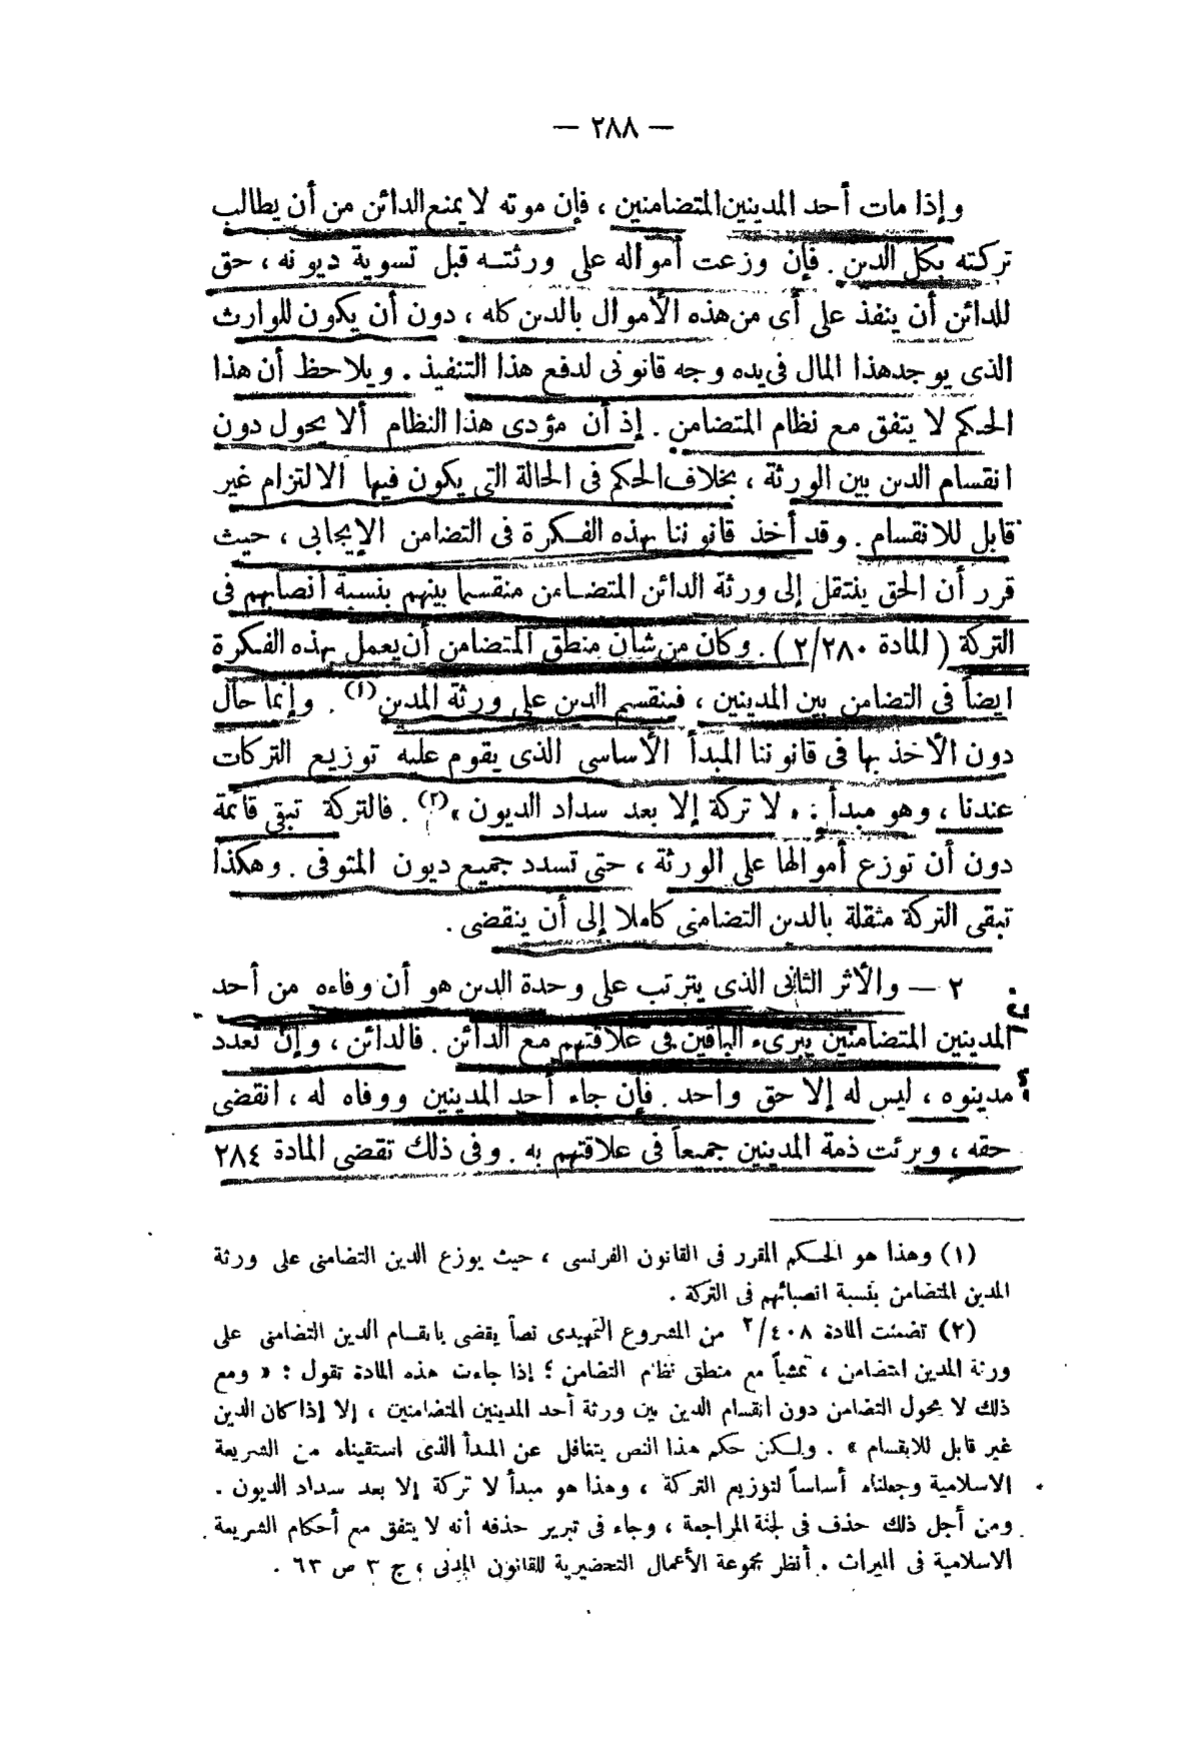 — ٢٨٨ —
وإذا مات أحد المدينين المتضامنين ، فإن موته لا يمنع الدائن من أن يطالب
تركته بكل الدين . فإن وزعت أمواله على ورثتــه قبل تسوية ديونه ، حق
للدائن أن ينفذ على أى من هذه الأموال بالدين كله ، دون أن يكون للوارث
الذى يوجد هذا المال فى يده وجه قانونى لدفع هذا التنفيذ . ويلاحظ أن هذا
الحكم لا يتفق مع نظام المتضامن . إذ أن مؤدى هذا النظام ألا يحول دون
انقسام الدين بين الورثة ، بخلاف الحكم فى الحالة التى يكون فيها الالتزام غير
قابل للانقسام . وقد أخذ قانوننا بهذه الفـكرة فى التضامن الإيجابى ، حيث
قرر أن الحق ينتقل إلى ورثة الدائن المتضـامن منقسما بينهم بنسبة أنصابهم فى
التركة ( المادة ٢/٢٨٠ ) . وكان من شأن منطق المتضامن أن يعمل بهذه الفـكرة
ايضاً فى التضامن بين المدينين ، فينقسم الدين على ورثة المدين (١) . وإنما حال
دون الأخذ بها فى قانوننا المبدأ الأساسى الذى يقوم عليه توزيع التركات
عندنا ، وهو مبدأ : « لا تركة إلا بعد سداد الديون » (٢) . فالتركة تبقى قائمة
دون أن توزع أموالها على الورثة ، حتى تسدد جميع ديون المتوفى . وهكذا
تبقى التركة مثقلة بالدين التضامنى كاملا إلى أن ينقضى .
٢ — والأثر الثانى الذى يترتب على وحدة الدين هو أن وفاءه من أحد
المدينين المتضامنين يبرىء الباقين فى علاقتهم مع الدائن . فالدائن ، وإن تعدد
مدينوه ، ليس له إلا حق واحد . فإن جاء أحد المدينين ووفاه له ، انقضى
حقه ، وبرئت ذمة المدينين جميعاً فى علاقتهم به . وفى ذلك تقضى المادة ٢٨٤
(١) وهذا هو الحـكم المقرر فى القانون الفرنسى ، حيث يوزع الدين التضامنى على ورثة
المدين المتضامن بنسبة انصبائهم فى التركة .
(٢) تضمنت المادة ٢/٤٠٨ من المشروع التمهيدى نصاً يقضى بانقسام الدين التضامنى على
ورثة المدين المتضامن ، تمشياً مع منطق نظام التضامن ؛ إذا جاءت هذه المادة تقول : « ومع
ذلك لا يحول التضامن دون انقسام الدين بين ورثة أحد المدينين المتضامنين ، إلا إذا كان الدين
غير قابل للانقسام » . ولـكن حكم هذا النص يتغافل عن المبدأ الذى استقيناه من الشريعة
الاسلامية وجعلناه أساساً لتوزيع التركة ، وهذا هو مبدأ لا تركة إلا بعد سداد الديون .
ومن أجل ذلك حذف فى لجنة المراجعة ، وجاء فى تبرير حذفه أنه لا يتفق مع أحكام الشريعة
الاسلامية فى الميراث . أنظر مجموعة الأعمال التحضيرية للقانون المدنى ، ج ٣ ص ٦٣ .